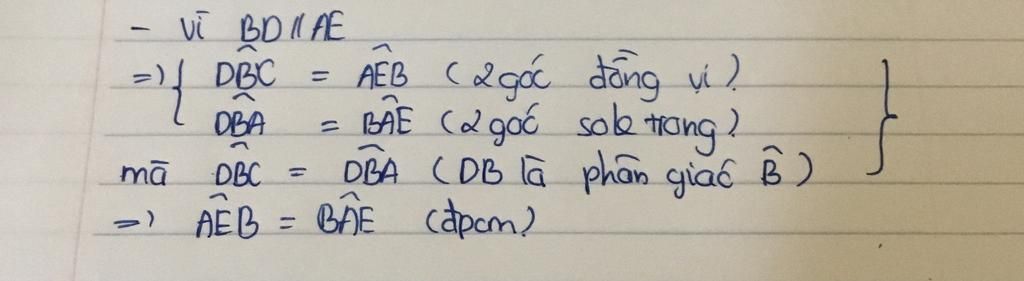 - Vì BD // AE
=> { DBC^ = AEB^ (2 góc đồng vị)
DBA^ = BAE^ (2 góc sole trong) }
mà DBC^ = DBA^ (DB là phân giác B^)
=> AEB^ = BAE^ (đpcm)